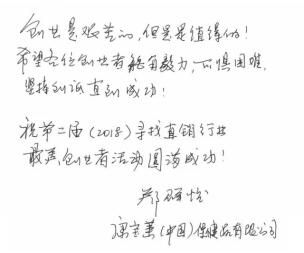 创业是艰苦的,但是是值得的!
希望各位创业者能有毅力,不惧困难,
坚持到底直到成功!
祝第二届(2018)寻找直销行业
最美创业者活动圆满成功!
郑
康宝莱(中国)保健品有限公司